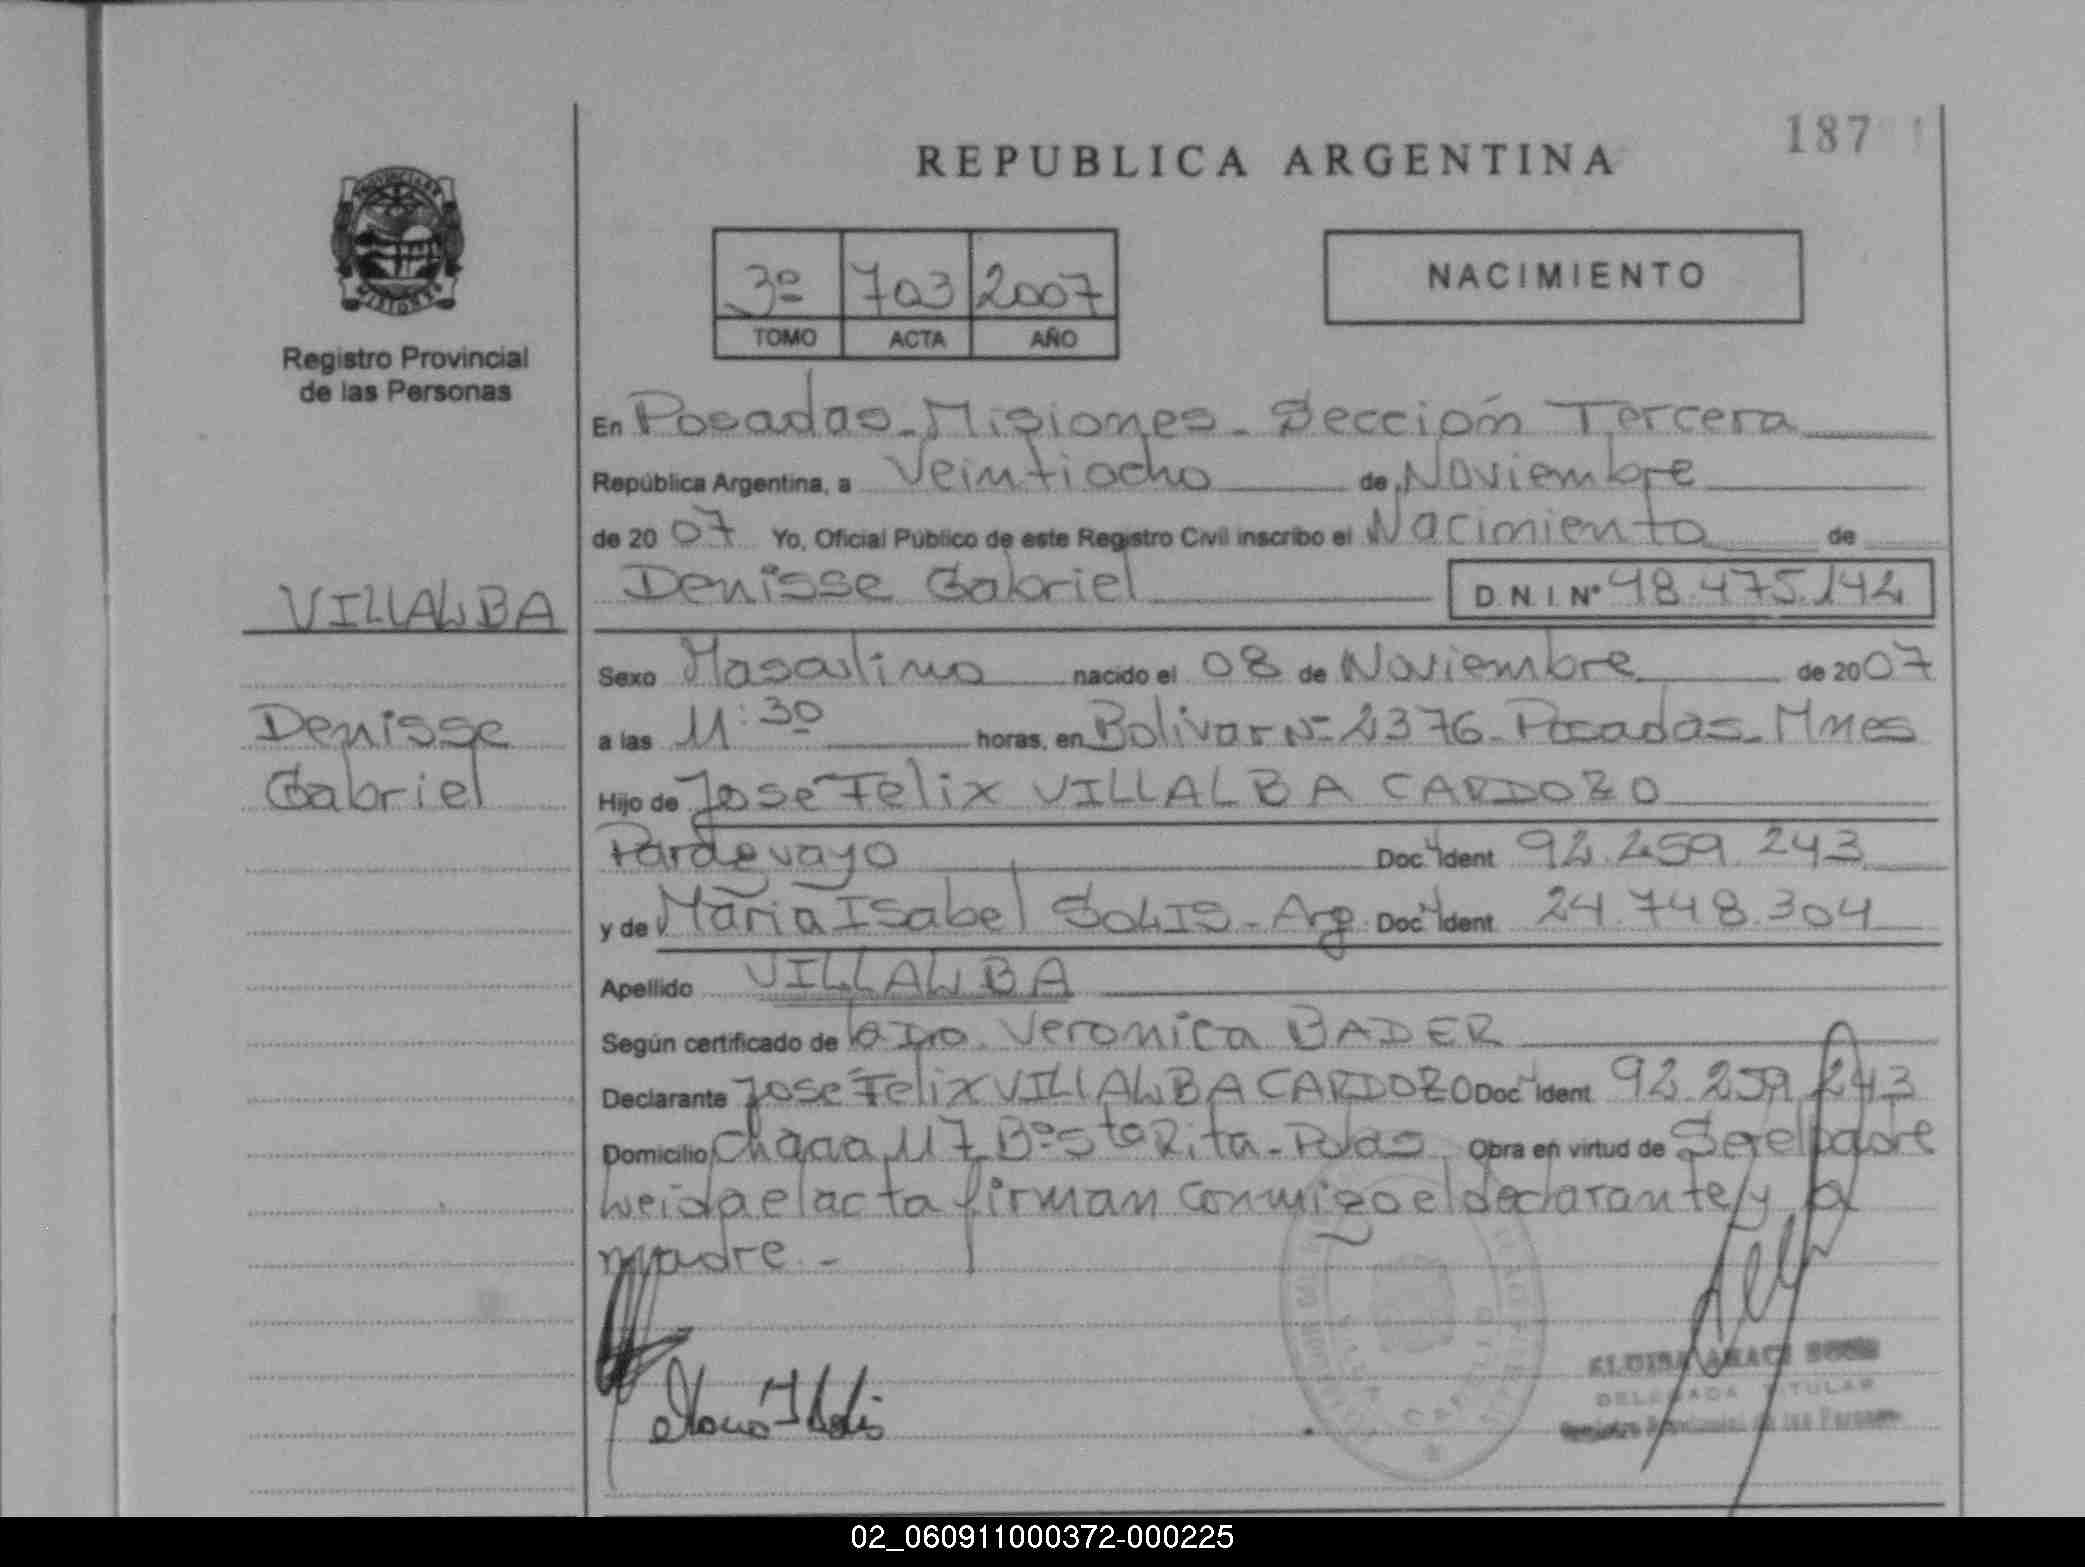 187
REPUBLICA ARGENTINA
PROVINCIA DE
MISIONES
Registro Provincial
de las Personas
3º 703 2007
TOMO ACTA AÑO
NACIMIENTO
En Posadas - Misiones - Sección Tercera
República Argentina, a Veintiocho de Noviembre
de 2007 Yo, Oficial Público de este Registro Civil inscribo el Nacimiento de
Denisse Gabriel D.N.I. Nº 48.475.142
VILLALBA
Denisse
Gabriel
Sexo Masculino nacido el 08 de Noviembre de 2007
a las 11:30 horas, en Bolivar Nº 2376 - Posadas - Mnes
Hijo de José Felix VILLALBA CARDOZO
Doc. Ident 92.259.243
y de Maria Isabel SOLIS - Arg. Doc. Ident 24.748.304
Apellido VILLALBA
Según certificado de la Dra. Veronica BADER
Declarante José Felix VILLALBA CARDOZO Doc. Ident 92.259.243
Domicilio Chacra 117 Bº Sta Rita - Pdas Obra en virtud de Ser el padre
Leida el acta firman conmigo el declarante y la
madre. -
DELEGADA TITULAR
Registro Provincial de las Personas
02_060911000372-000225